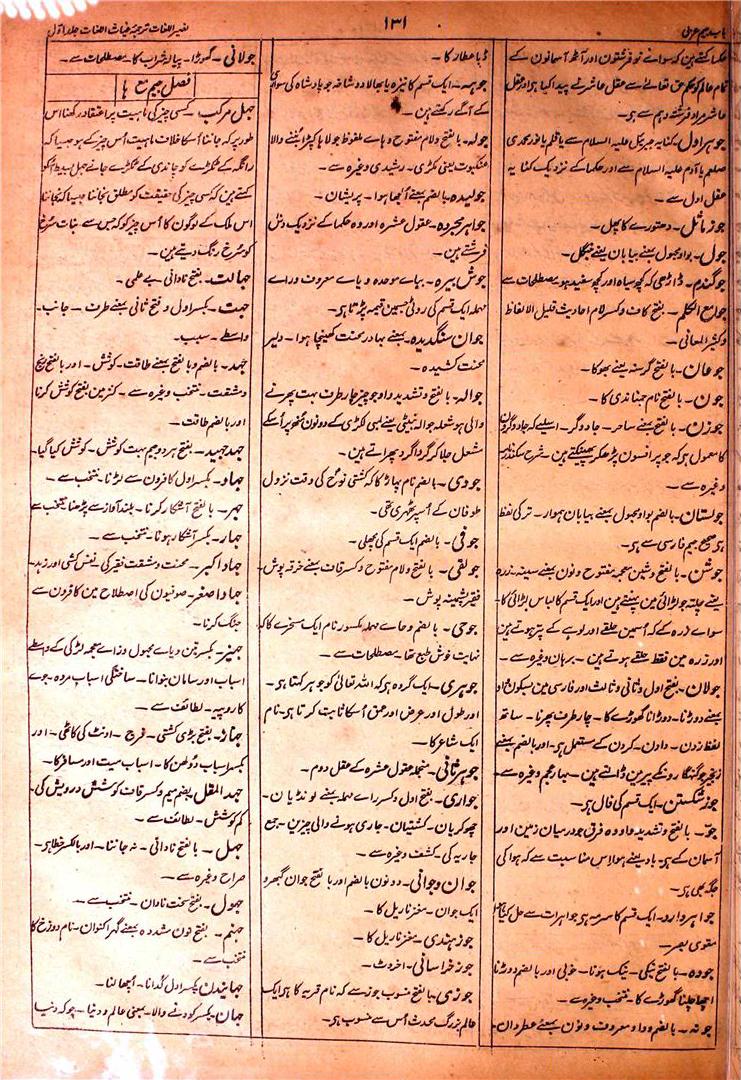 باب جیم عربی
۱۳۱
نصیر اللغات ترجمہ غیاث اللغات جلد اول
حکما کہتے ہین کہ سوائے نو فرشتون اور آٹھ آسمانون کے
تمام عالم کو حق تعالےٰ نے عقل عاشر سے پیدا کیا ہے اور عقل
عاشر مراد فرشتہ دہم سے ہے۔
جوہر اول۔ کنایہ جبریل علیہ السلام سے یا قلم یا نور محمدی
صلعم یا آدم علیہ السلام سے اور حکما کے نزدیک کنایہ
عقل اول سے۔
جوز ماثل۔ دھتورے کا پھل۔
جول۔ بواو مجہول بمعنے بیابان یعنے جنگل۔
جوگندم۔ ڈاڑھی کہ کچھ سیاہ اور کچھ سفید ہو۔ مصطلحات سے
جوامع الکلم۔ بفتح کاف و کسر لام احادیث قلیل الالفاظ
و کثیر المعانی۔
جوعان۔ بالفتح گرسنہ یعنے بھوکا۔
جون۔ بالفتح نام جمنا ندی کا۔
جوزن۔ بالفتح بمعنے ساحر۔ جادوگر۔ اسلیے کہ جادوگرون
کا معمول ہے کہ جو پر افسون پڑھکر پھینکتے ہین۔ شرح سکندر
وغیرہ سے۔
جولستان۔ بالضم بواو مجہول بمعنے بیابان ہموار۔ ترکی لفظ
ہے صحیح جیم فارسی سے ہے۔
جوشن۔ بالفتح و شین معجمہ مفتوح و نون بمعنے سینہ۔ زرہ
یعنے چلتہ جو لڑائی مین پہنتے ہین اور ایک قسم کا لباس لڑائی کا۔
سوائے زرہ کے کہ اُسمین حلقے اور لوہے کے پتر ہوتے ہین
اور زرہ مین فقط حلقے ہوتے ہین۔ برہان وغیرہ سے۔
جولان۔ بفتح اول و ثانی و ثالث اور فارسی مین بسکون ثانی
بمعنے دوڑنا۔ دوڑانا گھوڑے کا۔ چار طرف پھرنا۔ ساتھ
لفظ زدن۔ دادن۔ کردن کے مستعمل ہے۔ اور بالضم بمعنے
زنجیر جو گنہگارونکے پیر مین ڈالتے ہین۔ بہار عجم وغیرہ سے۔
جوز شکستن۔ ایک قسم کی فال ہے۔
جوّ۔ بالفتح و تشدید واو وہ فرق جو درمیان زمین اور
آسمان کے ہے۔ باد یعنے ہوا اس مناسبت سے کہ ہوا کی
جگہ بھی ہے۔
جواہر دارو۔ ایک قسم کا سرمہ ہے جو جواہرات سے حل کیا
مقوی بصر۔
جودہ۔ بالفتح نیکی۔ نیک ہونا۔ خوبی اور بالضم دوڑنا
اچھا چلنا گھوڑے کا۔ منتخب وغیرہ سے۔
جونہ۔ بالضم و واو معروف و نون بمعنے عطر دان۔
ڈبا عطار کا۔
جوہہ۔ ایک قسم کا نیزہ یا بھالا دو شاخہ جو بادشاہ کی سواری
کے آگے رکھتے ہین۔
جولہ۔ بالفتح و لام مفتوح و ہاے ملفوظ جولاہا کپڑا بُننے والا
عنکبوت یعنی مکڑی۔ رشیدی وغیرہ سے۔
جولیدہ۔ بالضم بمعنے اُلجھا ہوا۔ پریشان۔
جواہر مجردہ۔ عقول عشرہ اور وہ حکما کے نزدیک دس
فرشتے ہین۔
جوش بیرہ۔ بیاے موحدہ و یاے معروف و راے
مہملہ ایک قسم کی روٹی جسمین قیمہ پڑتا ہے۔
جوان سنگدیدہ۔ بمعنے بہادر محنت کھینچا ہوا۔ دلیر
محنت کشیدہ۔
جوالہ۔ بالفتح و تشدید واو جو چیز چار طرف بہت پھرنے
والی ہو شعلہ جوالہ بنیٹی یعنے لمبی لکڑی کے دونون مُنھہ پر اُسکے
مشعل جلا کر گرداگرد پھراتے ہین۔
جودی۔ بالضم نام پہاڑ کا کہ کشتی نوح کی وقت نزول
طوفان کے اُسپر ٹھہری تھی۔
جوفی۔ بالضم ایک قسم کی مچھلی۔
جولقی۔ بالفتح و لام مفتوح و کسر قاف بمعنے خرقہ پوش۔
فقیر پشمینہ پوش۔
جوحی۔ بالضم و حاے مہملہ مکسور نام ایک مسخرے کا کہ
نہایت خوش طبع تھا۔ مصطلحات سے۔
جوہری۔ ایک گروہ ہے کہ اللہ تعالیٰ کو جوہر کہتا ہے۔
اور طول اور عرض اور عمق اُسکا ثابت کرتا ہے۔ نام
ایک شاعر کا۔
جوہر ثانی۔ منجملہ عقول عشرہ کے عقل دوم۔
جواری۔ بفتح اول و کسر راے مہملہ بمعنے لونڈیان۔
چھوکریان۔ کشتیان۔ جاری ہونے والی چیزین۔ جمع
جاریہ کی۔ کشف وغیرہ سے۔
جوان و جوانی۔ دونون بالضم اور بالفتح جوان گبھرو
ایک جوان۔ مغز ناریل کا۔
جوز ہندی۔ مغز ناریل کا۔
جوز خراسانی۔ اخروٹ۔
جوزی۔ بالفتح منسوب جوز سے کہ نام قریہ کا ہے ایک
عالم بزرگ محدث اُس سے منسوب ہے۔
جولانی۔ گھوڑا۔ پیالہ شراب کا۔ مصطلحات سے۔
فصل جیم مع ہا
جہل مرکب۔ کسی چیز کی ماہیت پر اعتقاد رکھنا اس
طور پر کہ جاننا اُسکا خلاف ماہیت اُس چیز کے ہو جیسا کہ
رانگ کے ٹکڑے کو چاندی کے ٹکڑے جانے جہل بسیط اُسکو
کہتے ہین کہ کسی چیز کی حقیقت کو مطلق نجاننا جیسا کہ نجاننا
اس ملک کے لوگون کا اُس چیز کو کہ جس سے بنات سُرخ
کو سُرخ رنگ دیتے ہین۔
جہالت۔ بفتح نادانی۔ بے علمی۔
جہت۔ بکسر اول و فتح ثانی بمعنے طرف۔ جانب۔
واسطے۔ سبب۔
جہد۔ بالضم و بالفتح بمعنے طاقت۔ کوشش۔ اور بالفتح رنج
و مشقت۔ منتخب وغیرہ سے۔ کنز مین بفتح کوشش کرنا
اور بالضم طاقت۔
جہد جہید۔ بفتح ہر دو جیم بہت کوشش۔ کوشش کیا گیا۔
جہاد۔ بکسر اول کافرون سے لڑنا۔ منتخب سے۔
جہر۔ بالفتح آشکار کرنا۔ بلند آواز سے پڑھنا۔ منتخب سے
جہار۔ بکسر آشکار ہونا۔ منتخب سے۔
جہاد اکبر۔ محنت و مشقت فقیر کی۔ نفس کشی اور زہد۔
جہاد اصغر۔ صوفیون کی اصطلاح مین کافرون سے
جنگ کرنا۔
جہیز۔ بکسرتین و یاے مجہول و زاے معجمہ لڑکی کے واسطے
اسباب اور سامان بنوانا۔ ساختگی اسباب مردہ۔ جوے
کا روپیہ۔ لطائف سے۔
جہاز۔ بفتح بڑی کشتی۔ فرج۔ اونٹ کی کاٹھی۔ اور
بکسر اسباب دُولھن کا۔ اسباب میت اور مسافر کا۔
جہد المقل۔ بضم میم و کسر قاف کوشش درویش کی۔
کم کوشش۔ لطائف سے۔
جہل۔ بالفتح نادانی۔ نہ جاننا۔ اور بالکسر خطا ہے۔
صراح وغیرہ سے۔
جہول۔ بفتح سخت نادان۔ منتخب سے۔
جہنم۔ بفتح نون مشددہ بمعنے گہرا کنوان۔ نام دوزخ کا
منتخب سے۔
جہانیدن۔ بکسر اول کُدانا۔ اُچھالنا۔
جہان۔ بکسر کودنے والا۔ بمعنی عالم و دنیا۔ چونکہ دنیا